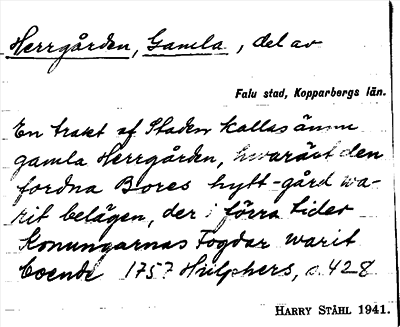 Herrgården, Gamla, del av
Falu stad, Kopparbergs län.
En trakt af Staden kallas ännu
gamla Herrgården, hwaräst den
fordna Bores hytt-gård wa-
rit belägen, der i förra tider
Konungarnas Fogdar warit
boende 1757 Hülphers, s. 428
HARRY STÅHL 1941.